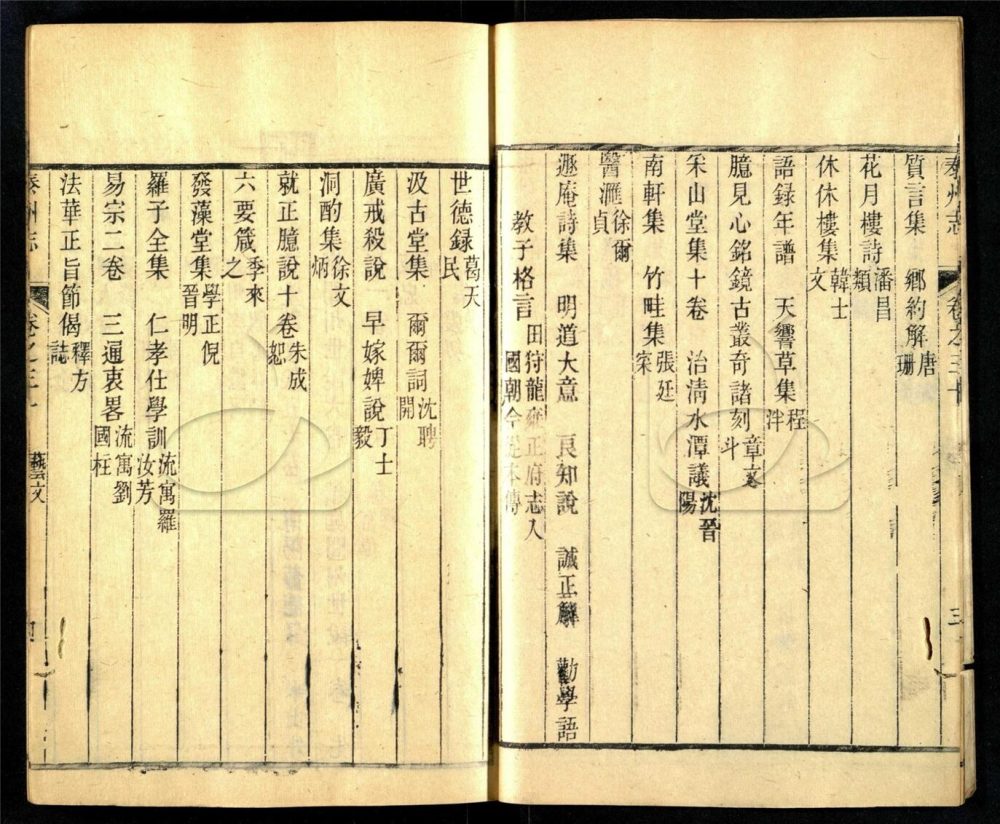 泰州志 卷之三十 三
質言集 鄉約解唐珊
花月樓詩潘昌類
休休樓集韓士文
語録年譜 天響草集程泮
臆見心銘鏡古叢奇諸刻章文斗
采山堂集十卷 治清水潭議沈晉陽
南軒集 竹畦集張廷寀
醫滙徐爾貞
遯庵詩集 明道大意 良知說 誠正解 勸學語
教子格言田狩龍雍正府志入國朝今從本傳
世德録葛天民
汲古堂集 爾爾詞沈聘開
廣戒殺說 早嫁婢說丁士毅
洞酌集徐文炳
就正臆說十卷朱成恕
六要箴季來之
發藻堂集學正倪晉明
羅子全集 仁孝仕學訓流寓羅汝芳
易宗二卷 三逼衷畧流寓劉國柱
法華正旨節偈釋方誌
泰州志 卷之三十 藝文 四